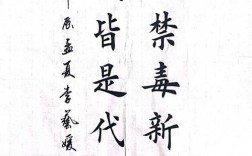 禁毒新
皆是代
辰孟夏李艺媛